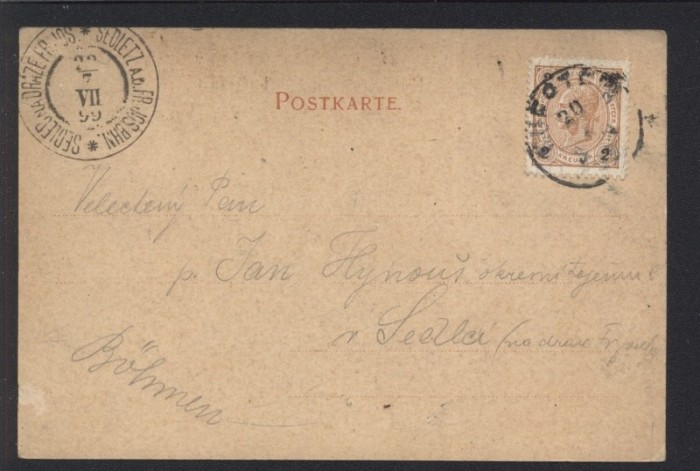 SEDLEC NA DRÁZE FR. JOS. * SEDLETZ A.D. FR. JOS. BHN. *
22
7
VII
99
POSTKARTE.
20
2 2
Velectěný Pan
p. Jan Hynouš okresní tajemník
v Sedlci (na dráze Fr. Josefa
Böhmen